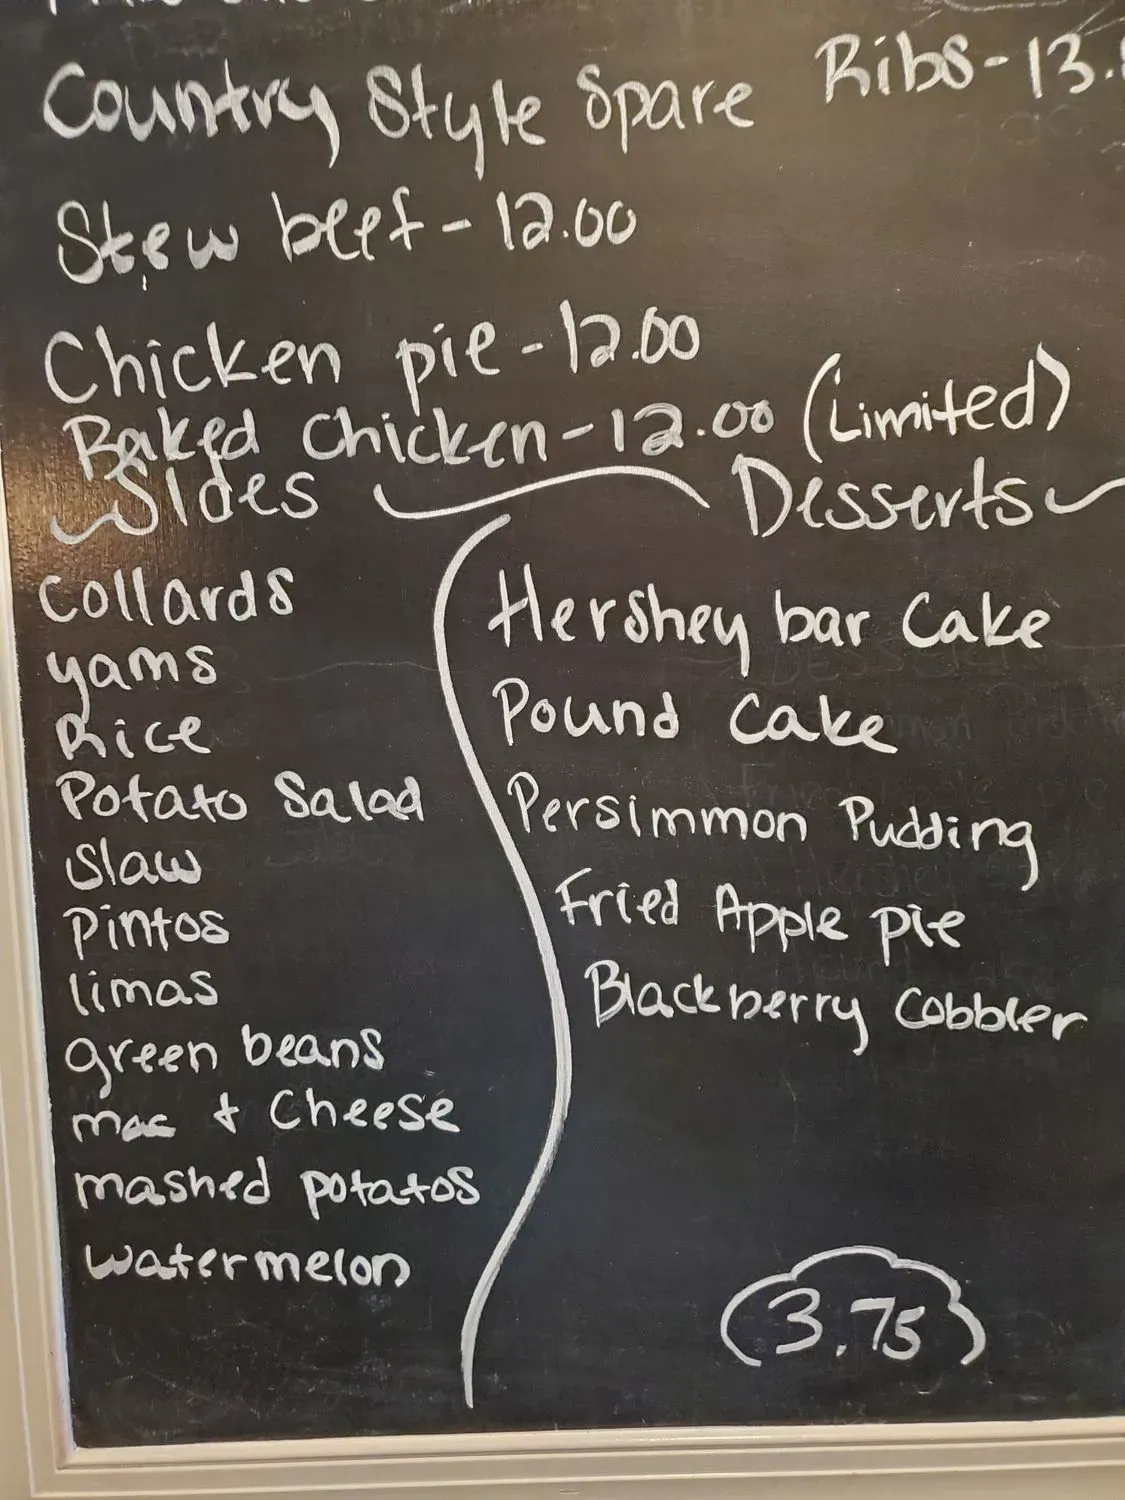 Country Style Spare Ribs - 13.
Stew beef - 12.00
Chicken pie - 12.00
Baked Chicken - 12.00 (Limited)
Sides
Collards
yams
Rice
Potato Salad
Slaw
Pintos
limas
green beans
mac + Cheese
mashed potatos
watermelon
Desserts
Hershey bar Cake
Pound Cake
Persimmon Pudding
Fried Apple pie
Blackberry Cobbler
3.75